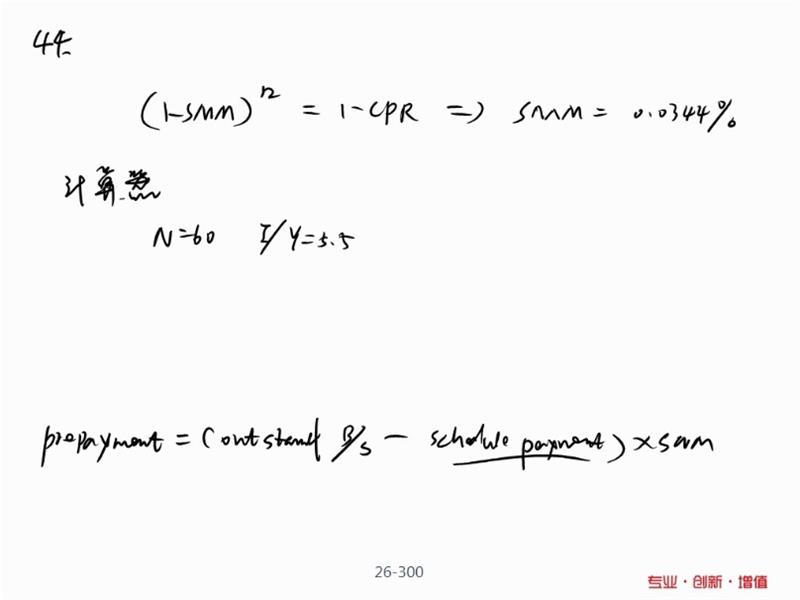 44.
(1-SMM)^12 = 1-CPR => SMM = 0.0344%
计算器
N=60 I/Y=5.5
prepayment = (outstand B/S - schedule payment) × SMM
26-300
专业·创新·增值